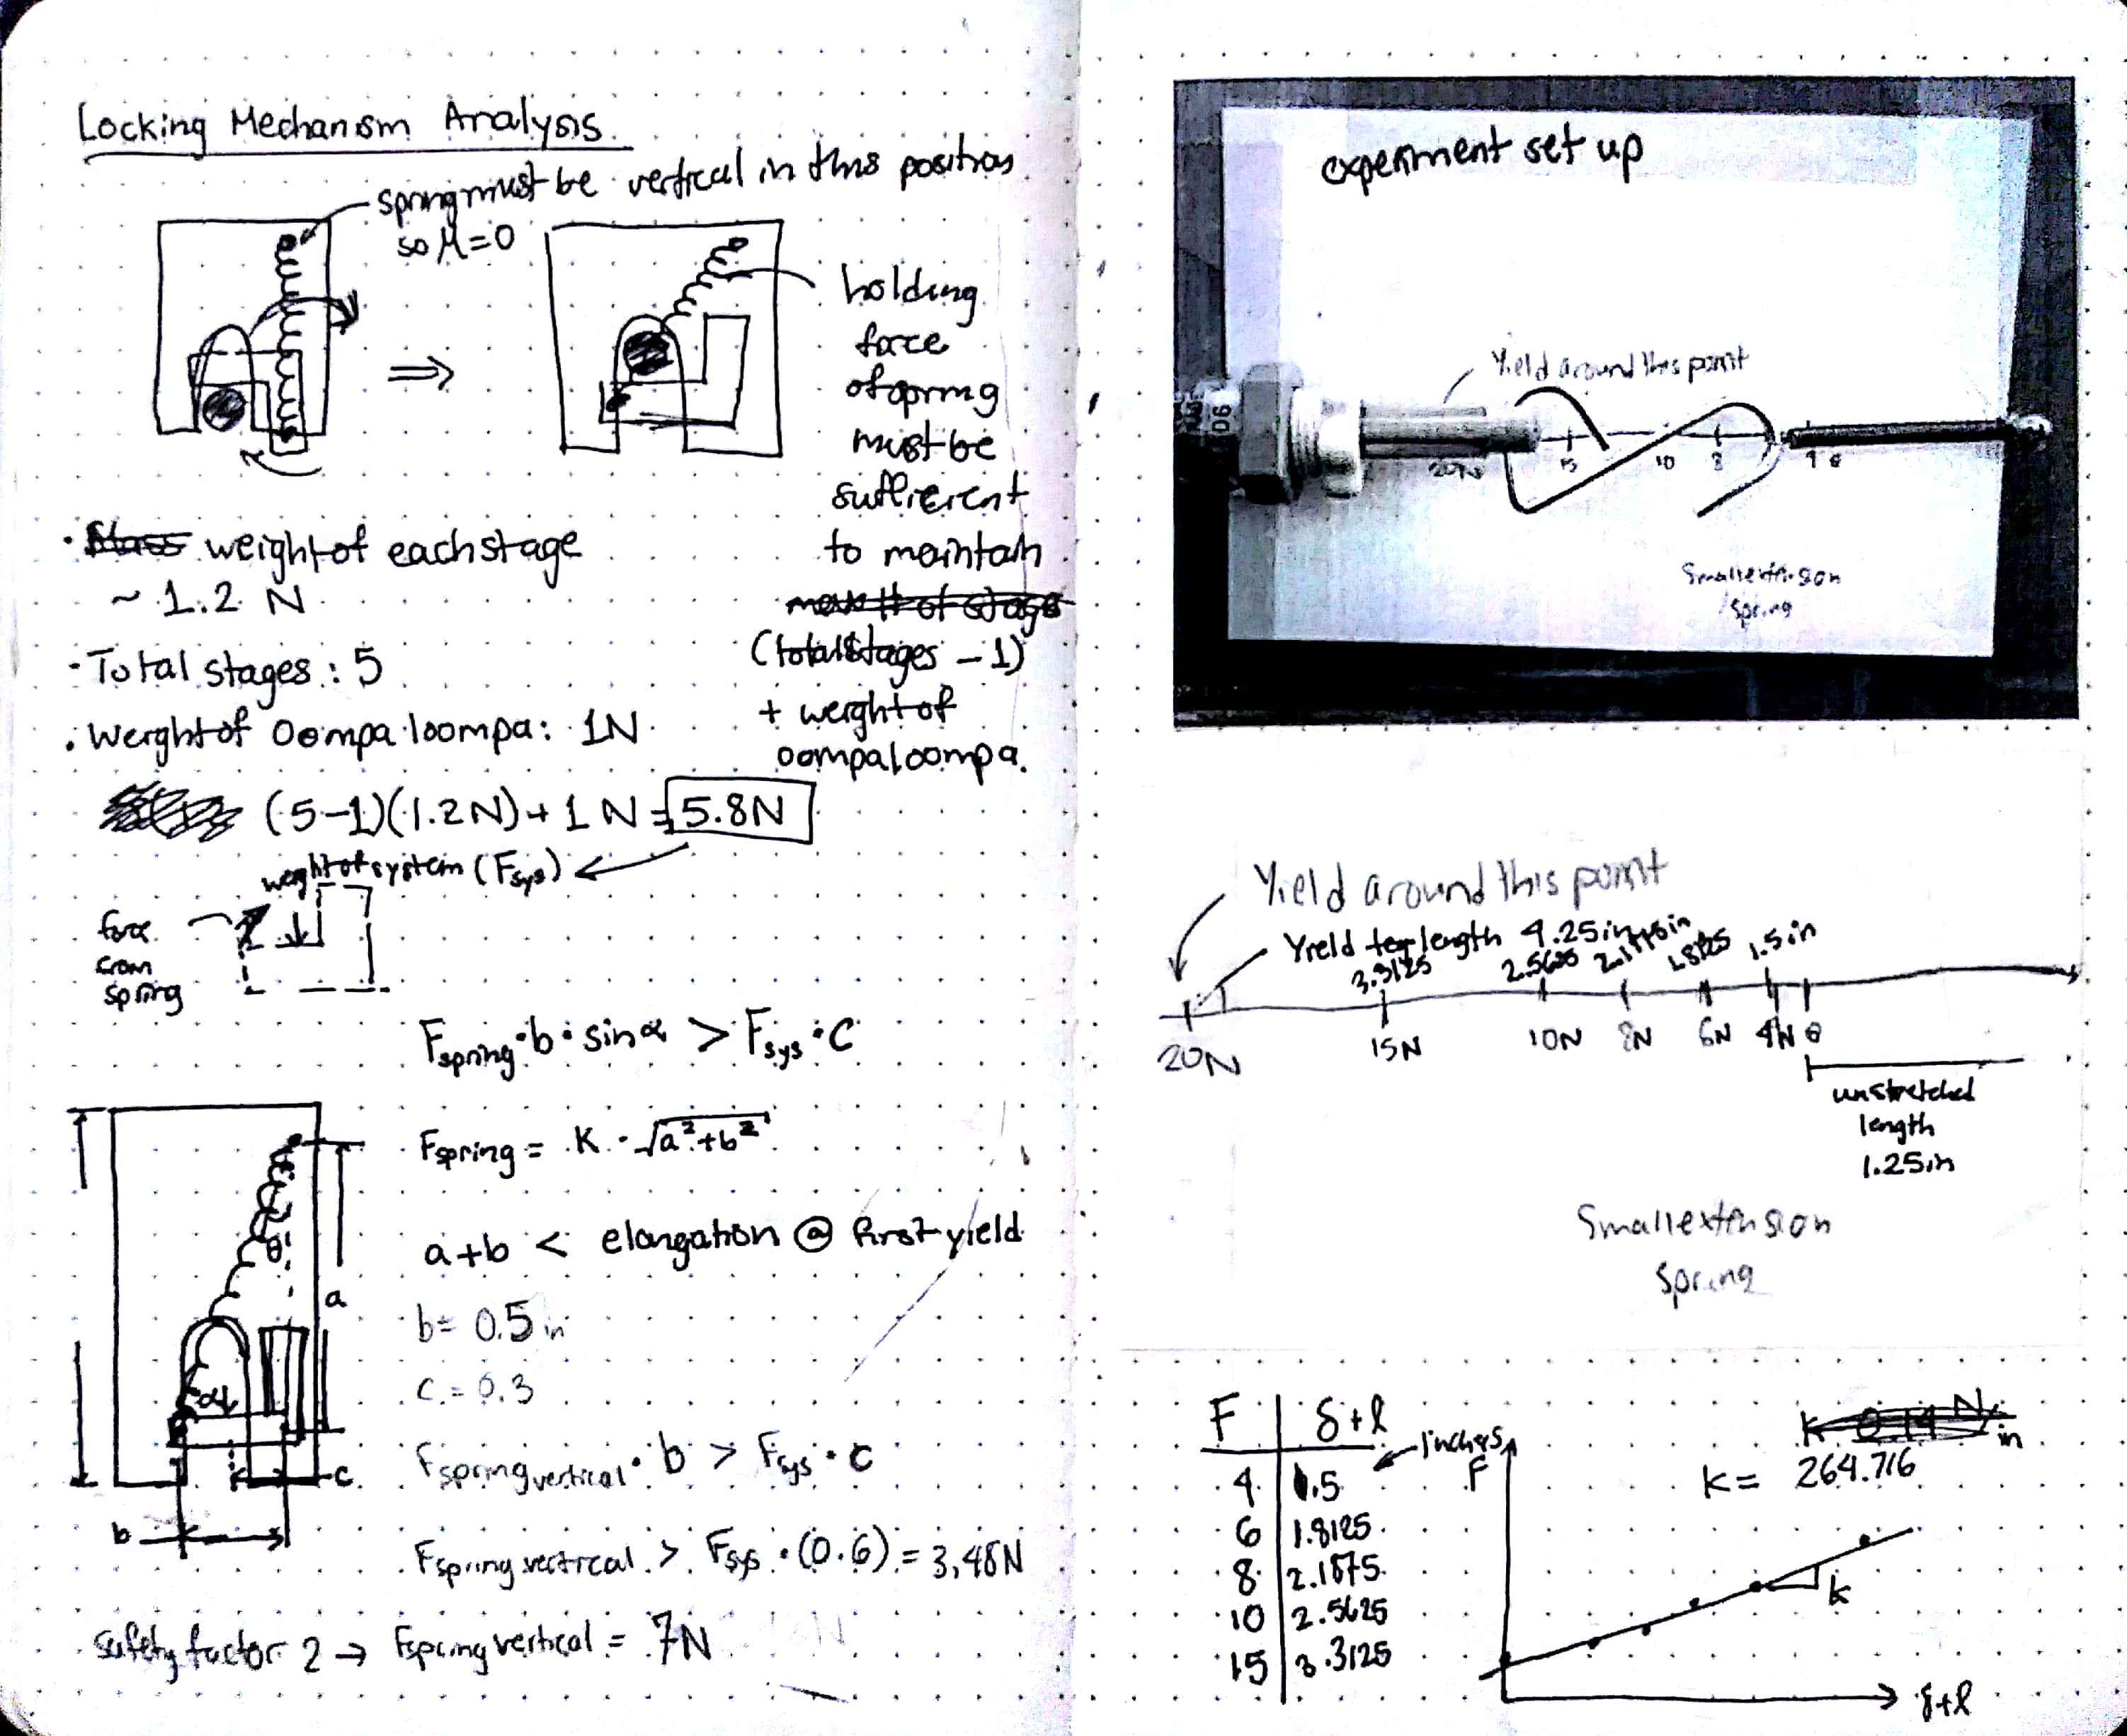 Locking Mechanism Analysis
spring must be vertical in this position
so M=0
holding
force
of spring
must be
sufficient
to maintain
(total stages - 1)
+ weight of
oompa loompa.
· weight of each stage
~ 1.2 N
· Total stages : 5
· Weight of Oompa loompa: 1N
(5-1)(1.2N) + 1 N = 5.8N
weight of system (Fsys)
force
from
spring
Fspring · b · sin α > Fsys · C
Fspring = K · √a²+b²
a+b < elongation @ first yield
b = 0.5 in
c = 0.3
Fspring vertical · b > Fsys · c
Fspring vertical > Fsys · (0.6) = 3.48N
safety factor 2 → Fspring vertical = 7N
θ
a
α
c
b
experiment set up
Yield around this point
20N 15 10 8 4 0
Small extension
Spring
Yield around this point
Yield length 4.25in
3.3125 2.5625 1.8125 1.5in
20N 15N 10N 8N 6N 4N 0
unstretched
length
1.25in
Small extension
Spring
F δ+l
inches
4 1.5
6 1.8125
8 2.1875
10 2.5625
15 3.3125
F
K = 264.716
k
δ+l